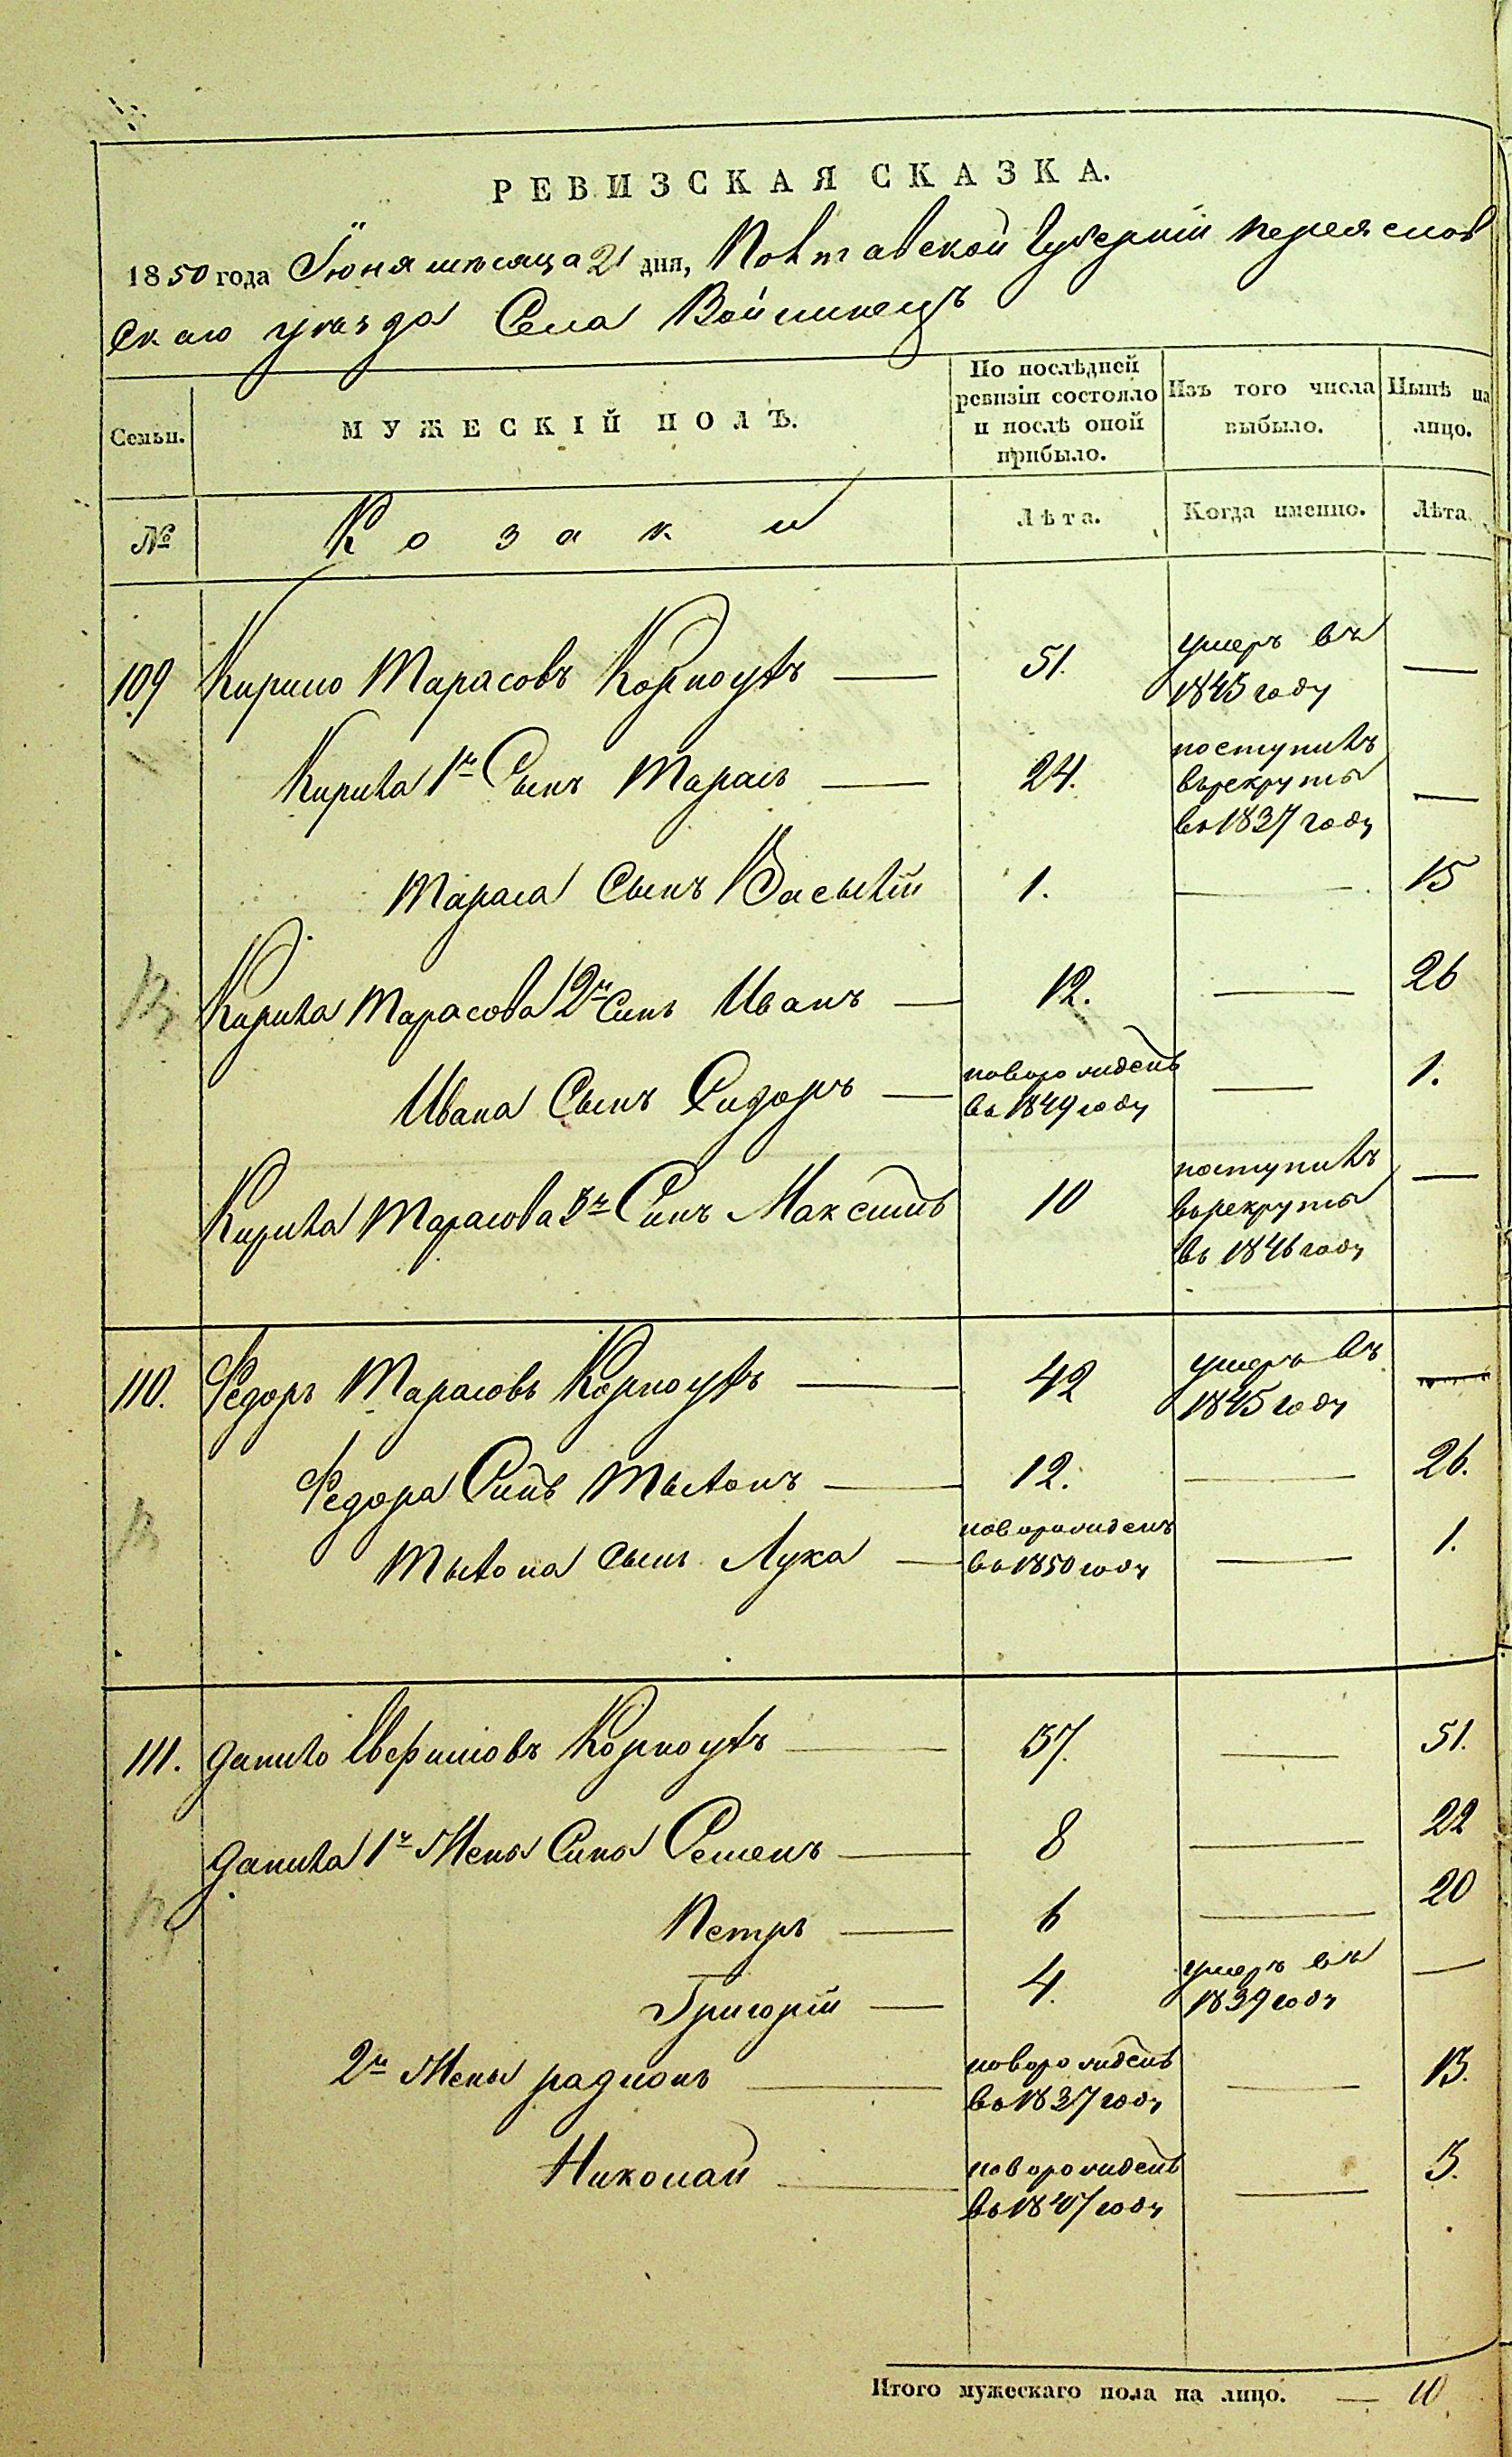 РЕВИЗСКАЯ СКАЗКА.
1850 года Іюня мѣсяца 21 дня, Полтавской Губерніи Переяслов
скаго уѣзда Села Войтинецъ
Семьи. МУЖЕСКІЙ ПОЛЪ. По послѣдней ревизіи состояло и послѣ оной прибыло. Изъ того числа выбыло. Нынѣ на лицо.
№ Козаки Лѣта. Когда именно. Лѣта.
109 Кирило Тарасовъ Корноухъ — 51. умеръ въ 1845 году —
Кирила 1й Сынъ Тарасъ — 24. поступилъ въ рекруты въ 1837 году —
Тараса Сынъ Васылій 1. — 15
Кирила Тарасова 2й Синъ Иванъ — 12. — 26
Ивана Сынъ Сидоръ — новорожденъ въ 1849 году — 1.
Кирила Тарасова 3й Синъ Максимъ 10 поступилъ въ рекруты въ 1846 году —
110. Федоръ Тарасовъ Корноухъ — 42 умеръ въ 1845 году —
Федора Синъ Тылонъ — 12. — 26.
Тылона Сынъ Лука — новорожденъ въ 1850 году — 1.
111. Данило Корноухъ — 37. — 51.
Данила 1й Жены Сины Семенъ — 8 — 22
Петръ — 6 — 20
Григорій — 4. умеръ въ 1839 году —
2й Жены радионъ — новорожденъ въ 1837 году — 13.
Николай — новорожденъ въ 1847 году — 3.
Итого мужескаго пола на лицо. — 10